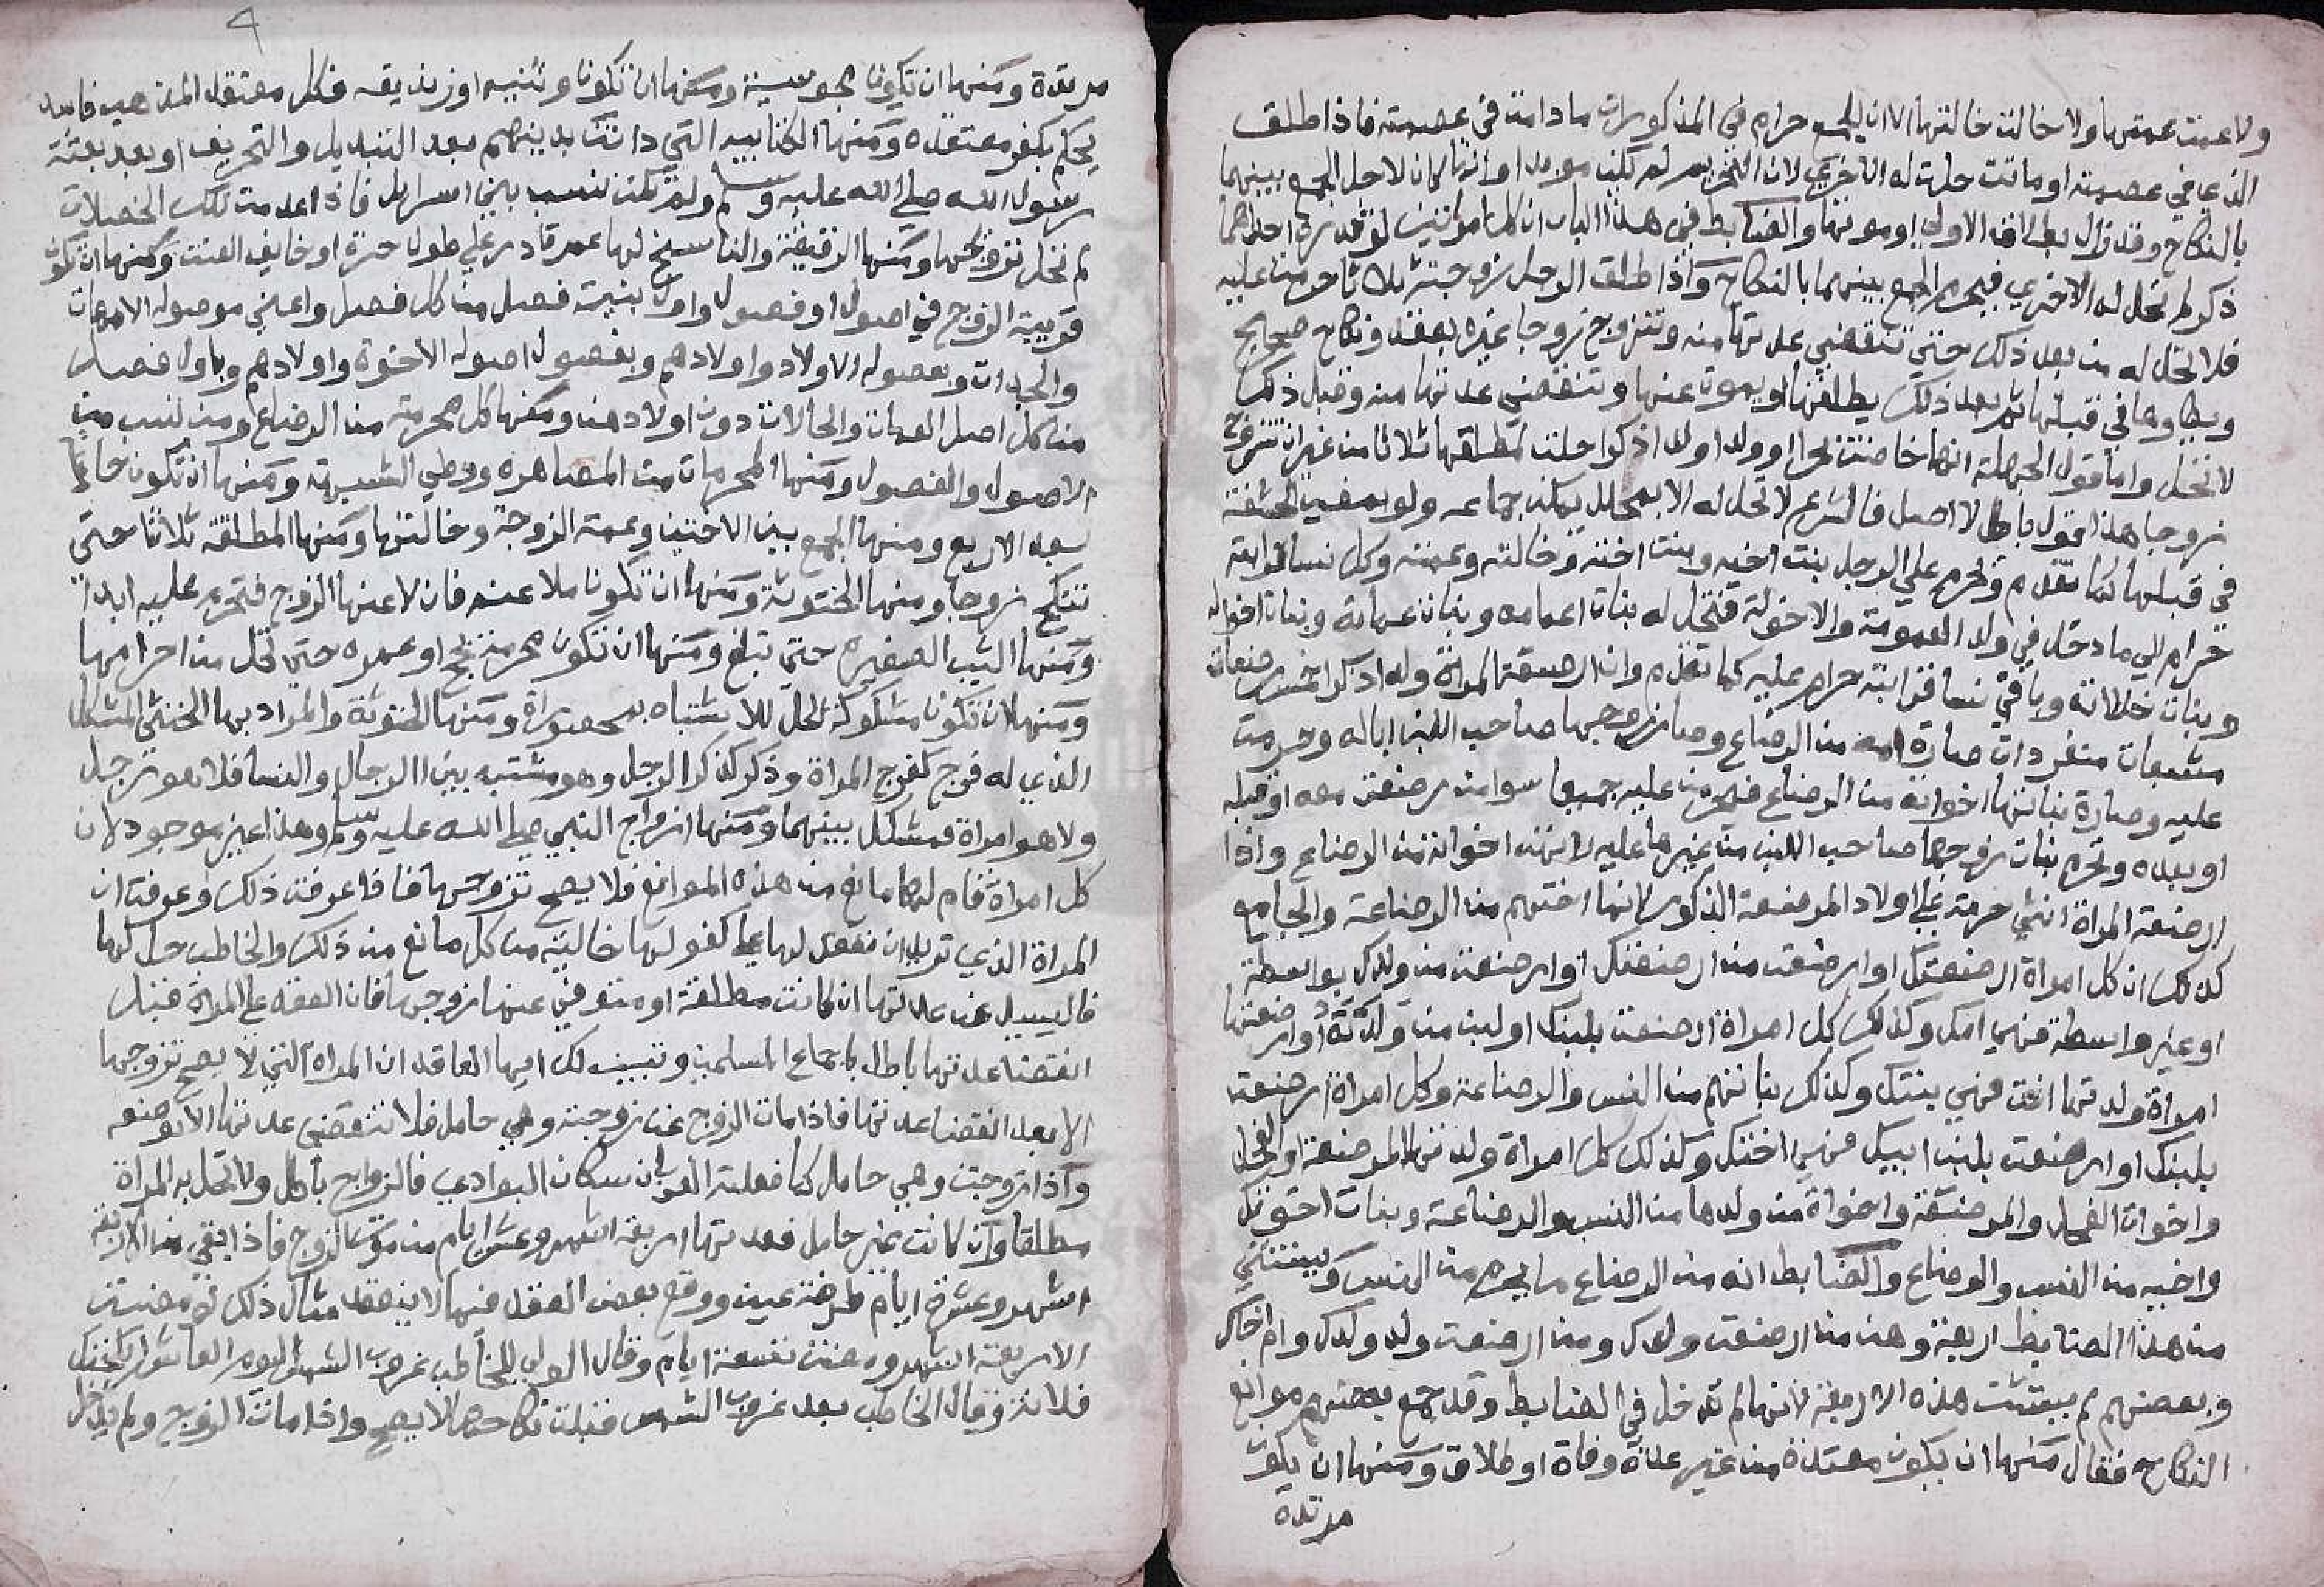 ولا عمت عمتها ولا خالت خالتها الا ان الجمع حرام في المذكورات ما دامت في عصمته فاذا طلق
الذي في عصمته او ماتت حلت له الاخري لان التحريم لم يكن موبدا وانما كان لاجل الجمع بينهما
بالنكاح وقد زال بطلاق الاولي او موتها والضابط في هذا الباب ان كل امراتين لو قدرة احداهما
ذكر لم تحل له الاخري فيحرم الجمع بينهما بالنكاح واذا طلق الرجل زوجته ثلاثا حرمت عليه
فلا تحل له من بعد ذلك حتي تنقضي عدتها منه وتتزوج زوجا غيره بعقد ونكاح صحيح
ويطاوها في قبلها ثم بعد ذلك يطلقها او يموت عنها وتنقضي عدتها منه وقبل ذلك
لا تحل واما قول الجهلة انها خاضت بحرا او ولد اولدا ذكرا حلت لمطلقها ثلاثا من غير ان تتزوج
زوجا هذا قول باطل لا اصل فالشرع لا تحل له الا بمحلل يمكن جماعه ولو بمغيب الحشفة
في قبلها كما تقدم وتحرم علي الرجل بنت اخيه وبنت اخته وخالته وعمته وكل نسا قرابته
حرام الي ما دخل في ولد العمومة والاخولة فتحل له بنات اعمامه وبنات عماته وبنات اخواله
وبنات خالاته وباقي نسا قرابته حرام عليه كما تقدم وان ارضعة المراة ولدا ذكرا خمس رضعات
مشبعات متفردات صارة امه من الرضاع وصار زوجها صاحب اللبن اباله وحرمت
عليه وصارة بناتها اخواته من الرضاع فتحرمن عليه جميعا سوا من رضعت معه او قبله
او بعده وتحرم بنات زوجها صاحب اللبن من غيرها عليه لانهن اخواته من الرضاع واذا
ارضعة المراة انثي حرمت علي اولاد المرضعة الذكور لانها اختهم من الرضاعة والجامع
كذلك ان كل امراة ارضعتك او ارضعت من ارضعتك او ارضعت من ولدك بواسطة
او غير واسطة فهي امك وكذلك كل امراة ارضعت بلبنك او لبن من ولدته او ارضعتها
امراة ولدتها انت فهي بنتك وكذلك بناتهم من النسب والرضاعة وكل امراة ارضعت
بلبنك او ارضعت بلبن ابيك فهي اختك وكذلك كل امراة ولدتها المرضعة او الفحل
واخوات الفحل والمرضعة واخواة من ولدها من النسب والرضاعة وبنات اخوتك
واخيه من النسب والرضاع والضابط انه من الرضاع ما يحرم من النسب ويستثني
من هذا الضابط اربعة وهن من ارضعت ولدك ومن ارضعت ولد ولدك وام اخاك
وبعضهم لم يستثن هذه الاربعة لانها لم تدخل في الضابط وقد جمع بعضهم موانع
النكاح فقال منها ان يكون معتدة من غير عدة وفاة او طلاق ومنها ان يكون
مرتدة
4
مرتدة ومنها ان تكون مجوسية ومنها ان تكون وثنيه او زنديقه فكل معتقد المذهب فاسد
يحكم بكفر معتقده ومنها الكتابيه التي دانت بدينهم بعد التبديل والتحريف او بعد بعثة
رسول الله صلي الله عليه وسلم ولم تكن تنسب بني اسرايل فاذا عدمت تلك الخصلات
لم تحل تزوجها ومنها الرقيقة والناسخ لها عمر قادر علي طول حرة او خايف العنت ومنها ان تكون
قريبة الزوج في اصول او فصول واول بنيت فصل من كل فصل واعني موصوله الامهات
والجدات وبفصوله الاولاد واولادهم وبفصول اصوله الاخوة واولادهم وباول فصل
من كل اصل العمات والخالات دون اولادهن ومنها كل محرمة من الرضاع ومن نسب من
الاصول والفصول ومنها المحرمات من المصاهره ووطي الشبهة ومنها ان تكون خامسا
بعد الاربع ومنها الجمع بين الاختين وعمت الزوجة وخالتها ومنها المطلقة ثلاثا حتي
تنكح زوجا ومنها الخنوثة ومنها ان تكون ملاعنه فان لاعنها الزوج فتحرم عليه ابدا
ومنها الثيب الصغيره حتي تبلغ ومنها ان تكون محرمة بحج او عمره حتي تحل من احرامها
ومنها لان تكون مشكوكة لحل للاشتباه بمحصوراة ومنها الخنوثة والمراد بها الخنثي المشكل
الذي له فرج كفرج المراة وذكر كذكر الرجل وهو مشتبه بين الرجال والنسا فلا هو رجل
ولا هو امراة فمشكل بينهما ومنها ازواج النبي صلي الله عليه وسلم وهذا غير موجود لان
كل امراة قام لها مانع من هذه الموانع فلا يصح تزوجها فاذا عرفت ذلك وعرفت ان
المراة الذي تريد ان تعقد لها علي كفو لها خالية من كل مانع من ذلك والخاطب حل لها
فاليسيل عن عدتها ان كانت مطلقة او متوفي عنها زوجها فان العقد علي المراة قبل
انقضا عدتها باطل باجماع المسلمين وتبيين لك ايها العاقد ان المراه التي لا يصح تزوجها
الا بعد انقضا عدتها فاذا مات الزوج عن زوجته وهي حامل فلا تنقضي عدتها الا بوضعه
واذا تزوجت وهي حامل كما فعلته العربان سكان البوادي فالزواج باطل ولا تحل به المراة
مطلقا وان كانت غير حامل فعدتها اربعة اشهر وعشر ايام من موت الزوج فاذا بقي من الاربعة
اشهر وعشرة ايام طرفة عين ووقع بعض العقد فيها لا ينعقد مثال ذلك لو مضت
الاربعة اشهر ومضت تسعة ايام وقال الولي للخاطب غروب الشمس اليوم العاشر انكحتك
فلانة وقال الخاطب بعد غروب الشمس قبلت نكاحها لا يصح واذا مات الزوج ولم يدخل